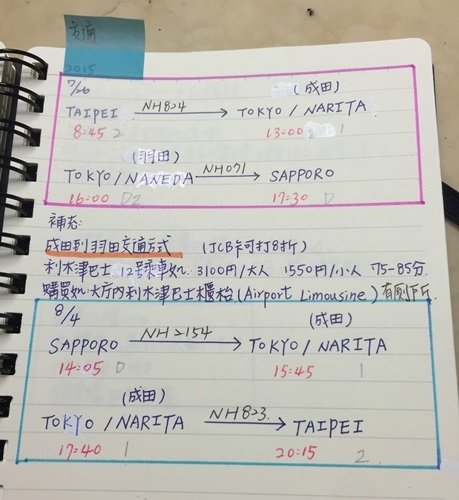 交通
2015
7/26 (成田)
TAIPEI NH824 TOKYO / NARITA
8:45 2 13:00 1
(羽田)
TOKYO / NANEDA NH071 SAPPORO
16:00 D2 17:30 D
補充:
成田到羽田交通方式 (JCB卡可打8折)
利木津巴士 3100円/大人 1550円/小人 75-85分.
購買処:大庁内利木津巴士櫃枱 (Airport Limousine) 有廁所.
8/4 (成田)
SAPPORO NH2154 TOKYO / NARITA
14:05 D 15:45 1
(成田)
TOKYO / NARITA NH823 TAIPEI
17:40 1 20:15 2